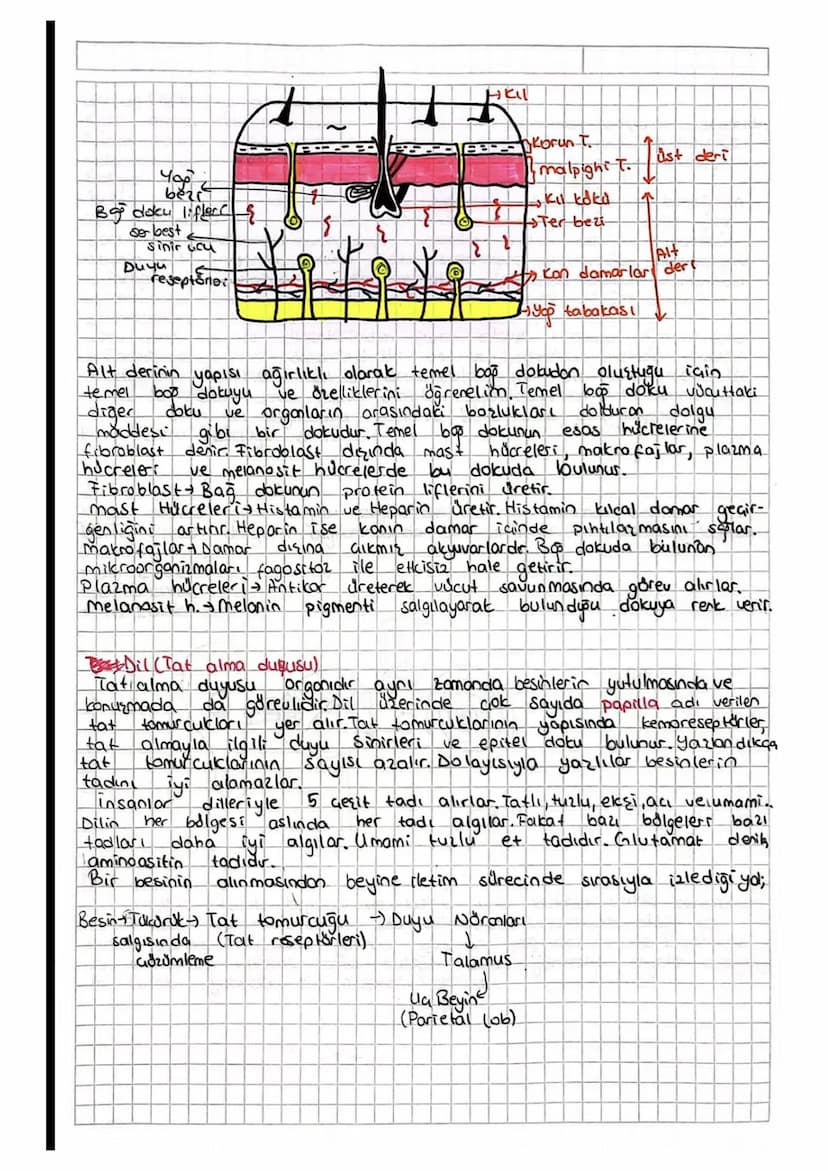 Kıl
Korun T.
malpighi T.
Üst deri
Yağ
bezi
Kıl kökü
Bağ doku lifleri
Ter bezi
serbest
sinir ucu
Alt
deri
Duyu
reseptörleri
Kan damarları
Yağ tabakası
Alt derinin yapısı ağırlıklı olarak temel bağ dokudan oluştuğu için
temel bağ dokuyu ve özelliklerini öğrenelim. Temel bağ doku vücuttaki
diğer doku ve organların arasındaki boşlukları dolduran dolgu
maddesi gibi bir dokudur. Temel bağ dokunun esas hücrelerine
fibroblast denir. Fibroblast dışında mast hücreleri, makrofajlar, plazma
hücreleri ve melanosit hücrelerde bu dokuda bulunur.
Fibroblast→ Bağ dokunun protein liflerini üretir.
mast Hücreleri→ Histamin ve Heparin üretir. Histamin kılcal damar geçir-
genliğini artırır. Heparin ise kanın damar içinde pıhtılaşmasını sağlar.
makrofajlar→ Damar dışına çıkmış akyuvarlardır. Bağ dokuda bulunan
mikroorganizmaları fagositoz ile etkisiz hale getirir.
Plazma hücreleri→ Antikor üreterek vücut savunmasında görev alırlar.
melanosit h.→ Melanin pigmenti salgılayarak bulunduğu dokuya renk verir.
Dil (Tat alma duyusu)
Tat alma duyusu organıdır aynı zamanda besinlerin yutulmasında ve
konuşmada da görevlidir. Dil üzerinde çok sayıda papilla adı verilen
tat tomurcukları yer alır. Tat tomurcuklarının yapısında kemoreseptörler,
tat almayla ilgili duyu sinirleri ve epitel doku bulunur. Yaşlandıkça
tat tomurcuklarının sayısı azalır. Dolayısıyla yaşlılar besinlerin
tadını iyi alamazlar.
İnsanlar dilleriyle 5 çeşit tadı alırlar. Tatlı, tuzlu, ekşi, acı ve umami.
Dilin her bölgesi aslında her tadı algılar. Fakat bazı bölgeleri bazı
tadları daha iyi algılar. Umami tuzlu et tadıdır. Glutamat denilen
aminoasitin tadıdır.
Bir besinin alınmasından beyine iletim sürecinde sırasıyla izlediği yol;
Besin→ Tükürük→ Tat tomurcuğu → Duyu Nöronları
salgısında (Tat reseptörleri) ↓
çözümleme Talamus
Uç Beyin
(Parietal lob)